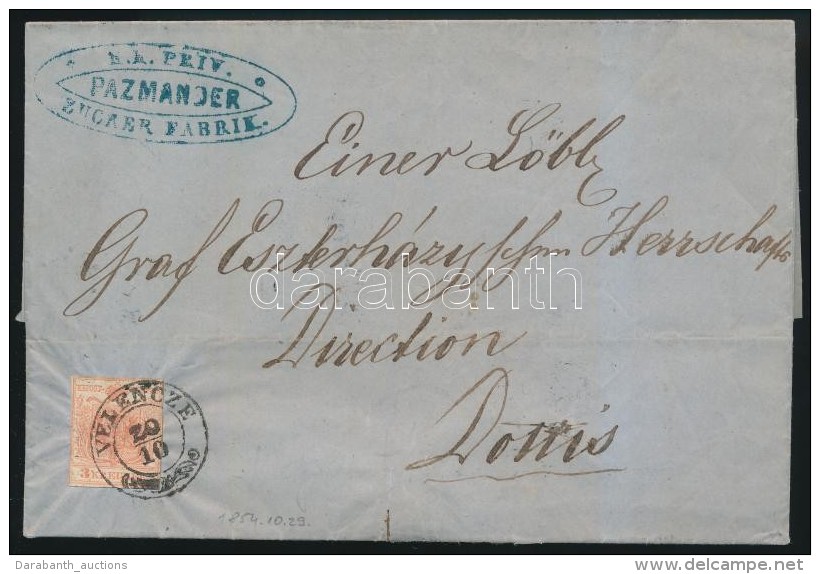 K.K. PRIV.
PAZMANDER
ZUCKER FABRIK.
Einer Löbl
Graf Eszterházyschen Herrschafts
darabanth
Direction
Dottis
VELENCZE
29
10
3 KREU
1854.10.29.
Darabanth_auctions
www.delcampe.net